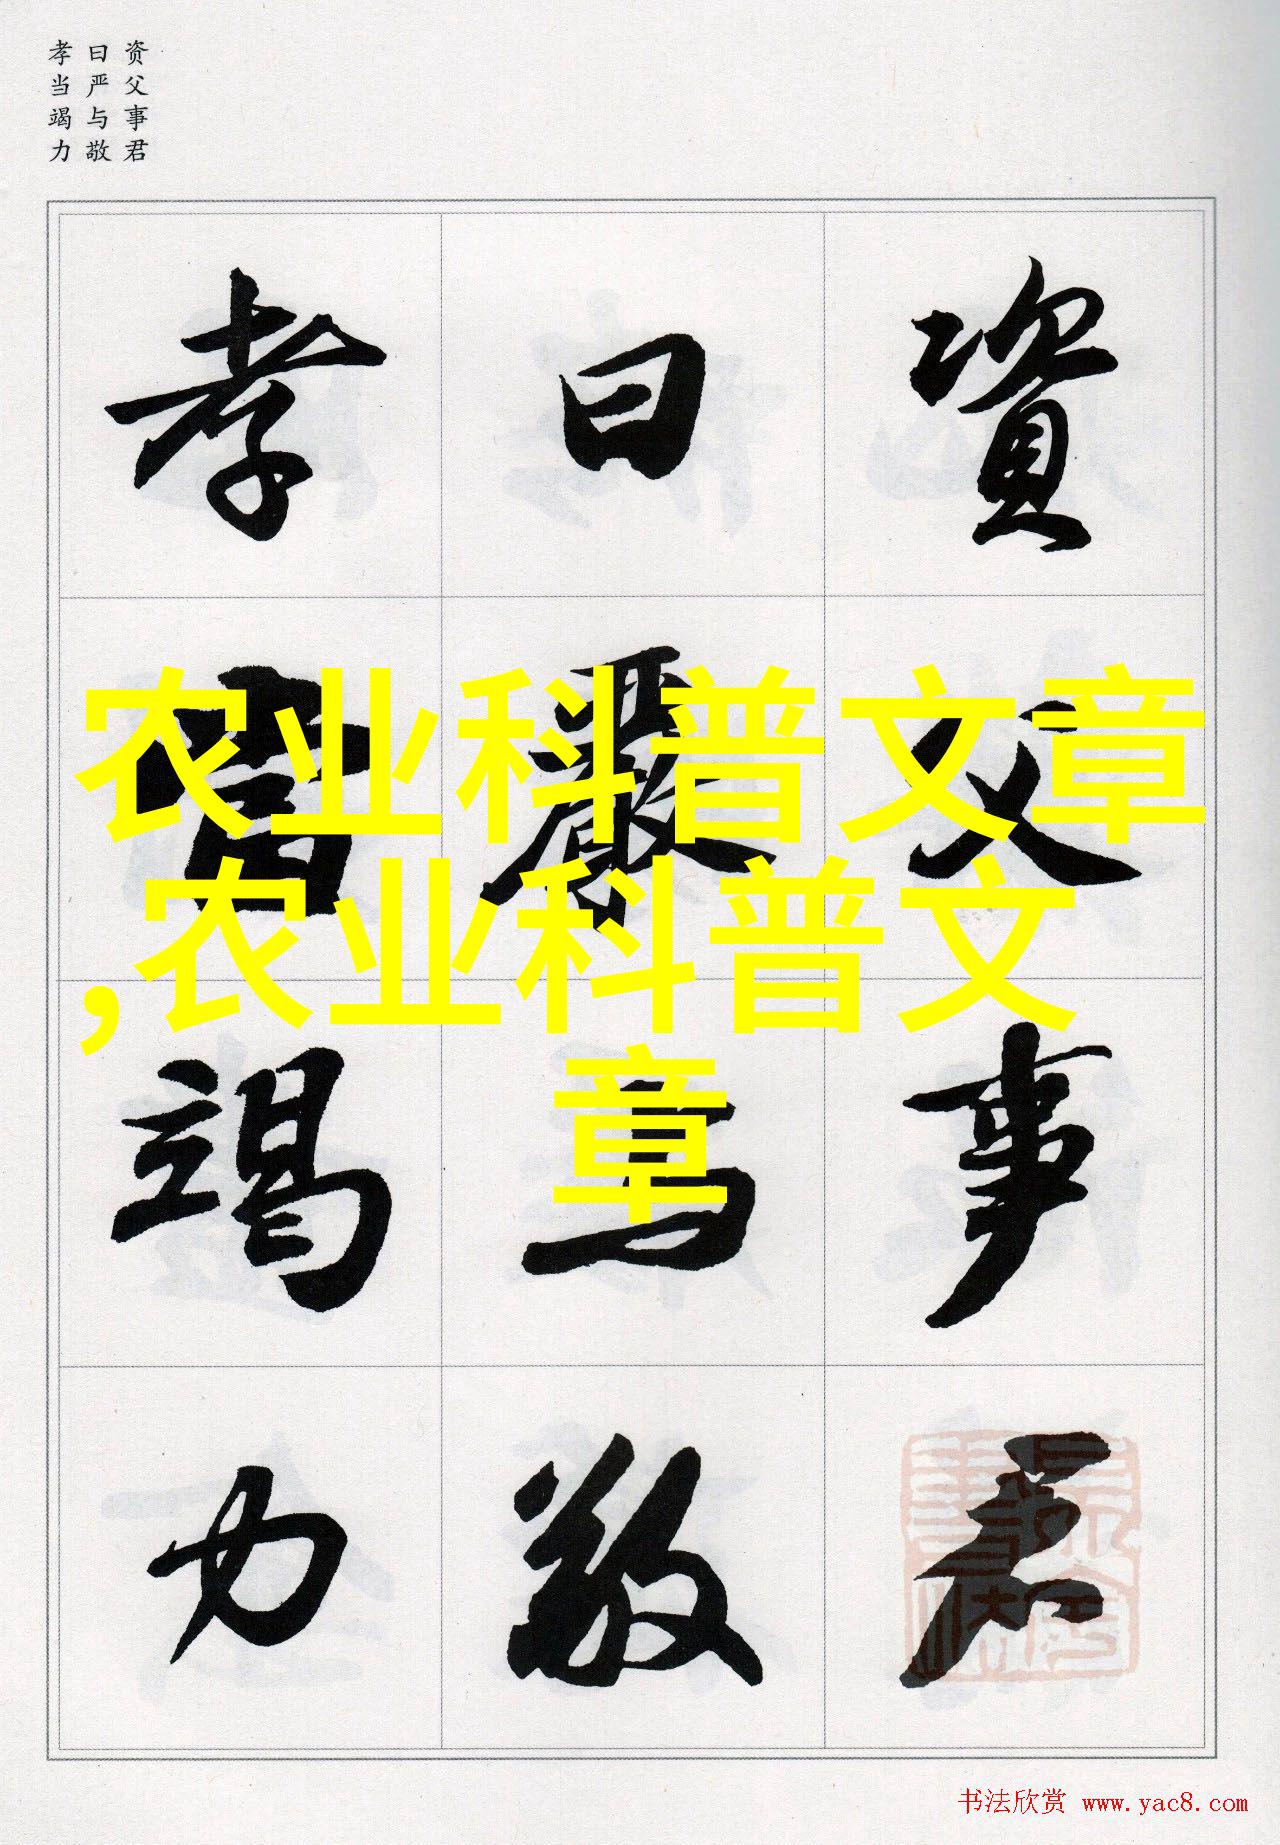 资父事君
曰严与敬
孝当竭力
資父事君
曰嚴與敬
孝當竭力
农业科普文章
,农业科普文
章
书法欣赏 www.yac8.com